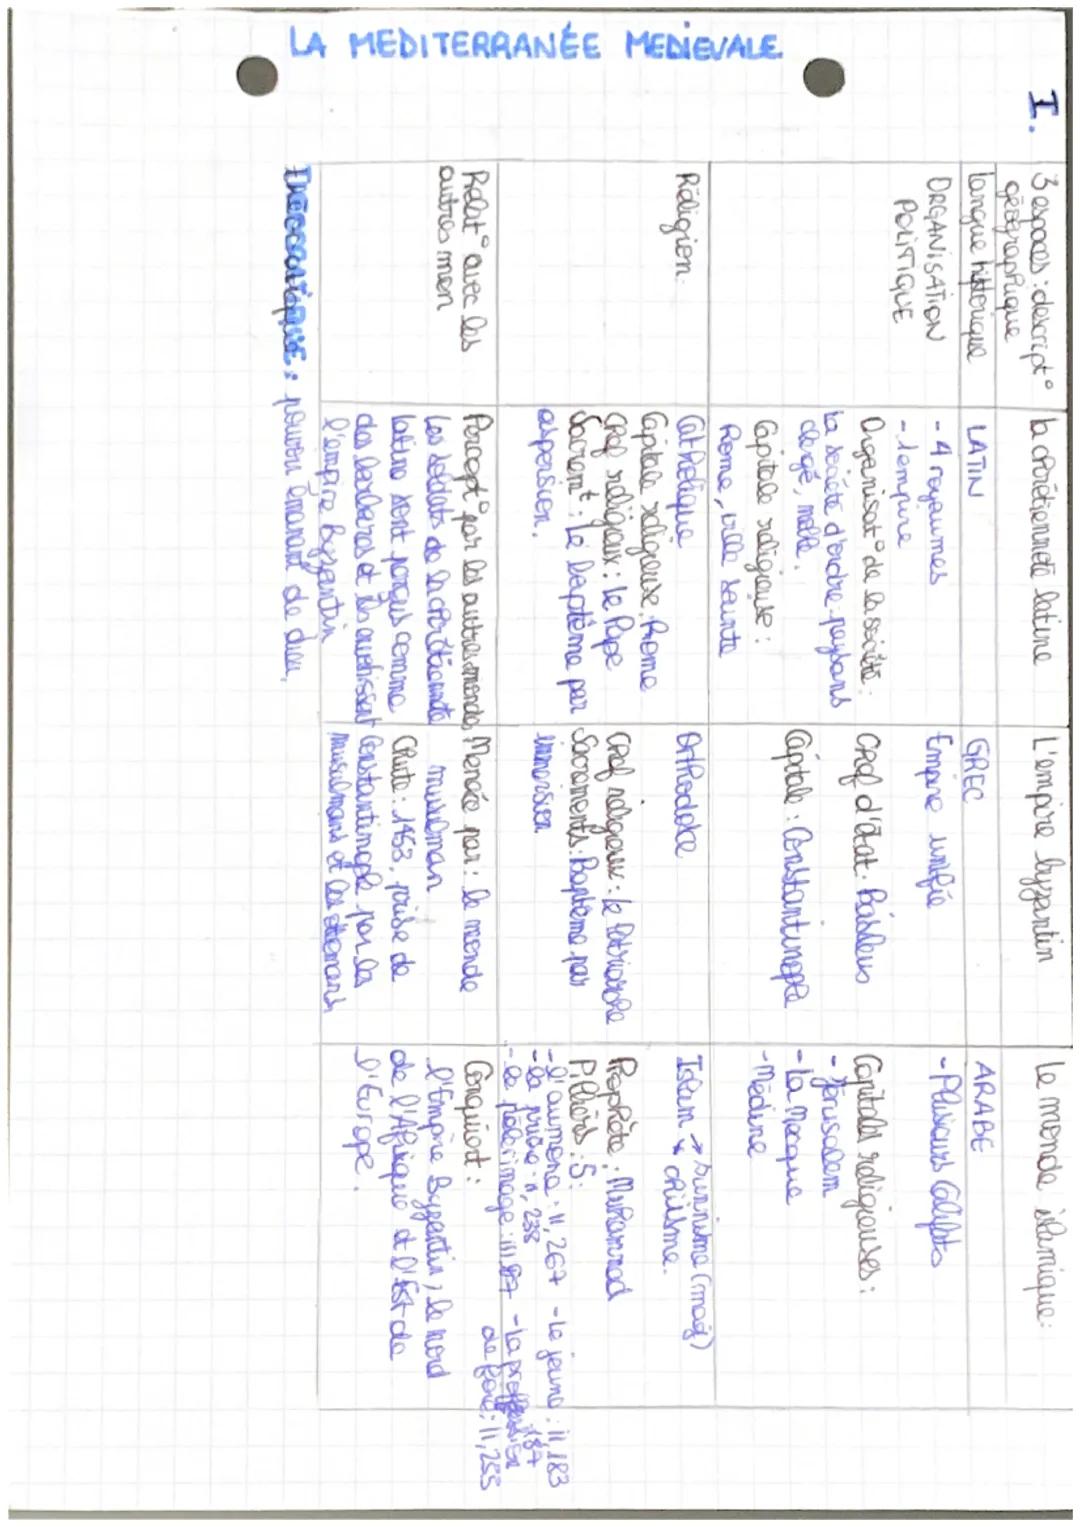 LA MEDITERRANÉE MEDIEVALE
I.
3 espaces : descript°
géographique
La chrétienneté latine
L'empire byzantin
Le monde islamique:
langue historique
LATIN
GREC
ARABE
ORGANISATION
POLITIQUE
- 4 royaumes
- 1 empire
Organisat° de la société :
La société d'ordre - paysans
clergé, noble.
Capitale religieuse :
Rome, ville sainte
Empire unifié
Chef d'état : Basileus
Capitale : Constantinople
- Plusieurs Califats
Capitales religieuses :
- Jérusalem
- La Mecque
- Médine
Réligion.
Catholique
Capitale religieuse : Rome
Chef religieux : le Pape
Sacrem^t : Le baptême par
aspersion.
Orthodoxe
Chef religieux : le Patriarche
Sacrements : Baptême par
immersion
Islam → sunnisme (maj)
↘ chiisme.
Prophète : Muhammad
Piliers : 5 :
- l'aumone : II, 267 - Le jeune : II, 183
- la prière : II, 238 187
- le pélerimage : III, 97 - La profession
de foie : II, 255
Relat° avec les
autres men
Percept° par les autres mondes
Les soldats de la chrétienneté
latine sont perçus comme
des barbares et ils
l'empire byzantin
Menée par : le monde
musulman
Chute : 1453, prise de
Constantinople par les
musulmans et les ottomans
Conquiert :
l'Empire Byzantin, le nord
de l'Afrique et l'Est de
l'Europe.
THEOCRATIQUE : pouvoir émanant de dieu.